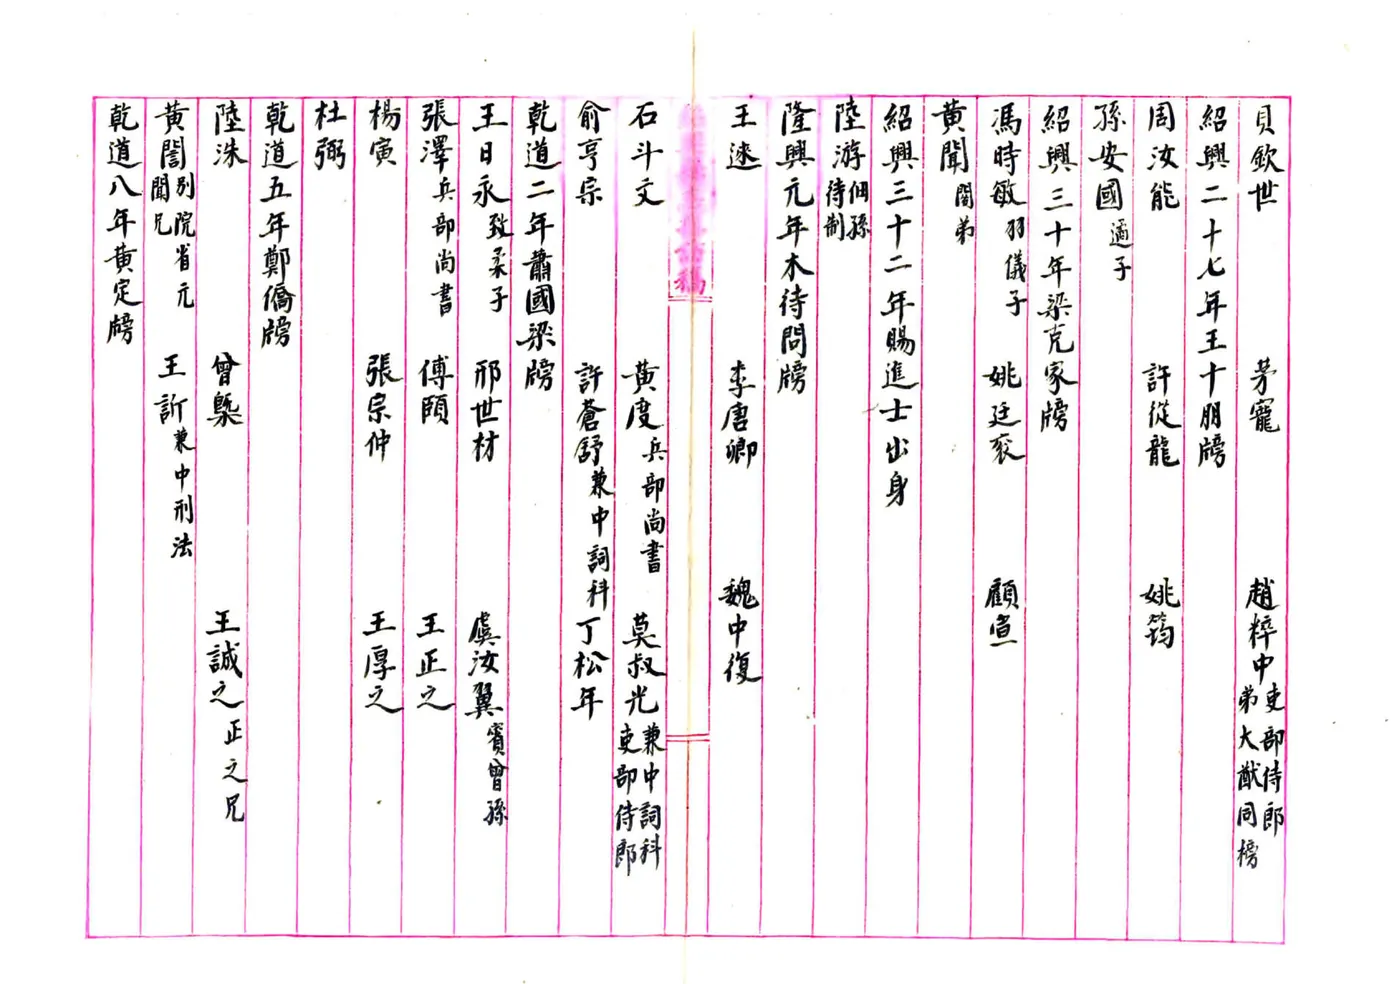 貝欽世 茅寵 趙粹中 吏部侍郎弟大猷同榜
紹興二十七年王十朋牓
周汝能 許從龍 姚筠
孫安國 適子
紹興三十年梁克家牓
馮時敏 羽儀子 姚廷袞 顧宣
黃聞 闓弟
紹興三十二年賜進士出身
陸游 佃孫待制
隆興元年木待問牓
王逨 李唐卿 魏中復
石斗文 黃度 兵部尚書 莫叔光 兼中詞科吏部侍郎
俞亨宗 許蒼舒 兼中詞科 丁松年
乾道二年蕭國梁牓
王日永 致柔子 邢世材 虞汝翼 賓曾孫
張澤 兵部尚書 傅頤 王正之
楊寅 張宗仲 王厚之
杜弼
乾道五年鄭僑牓
陸洙 曾槩 王誠之 正之兄
黃誾 別院省元聞兄 王訢 兼中刑法
乾道八年黃定牓